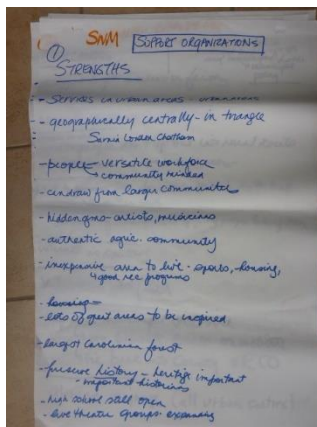 SWM SUPPORT ORGANIZATIONS
① STRENGTHS
- Services in urban areas -
- geographically centrally - in triangle
Sarnia London Chatham
- people - versatile workforce
community minded
- can draw from larger communities
- hidden gems - artists, musicians
- authentic agric. community
- inexpensive area to live - sports, housing,
4 good rec programs
- housing
- lots of quiet areas to be inspired
- largest Carolinian forest
- preserve history - heritage important
- important historians
- high school still open
- live theatre groups expanding